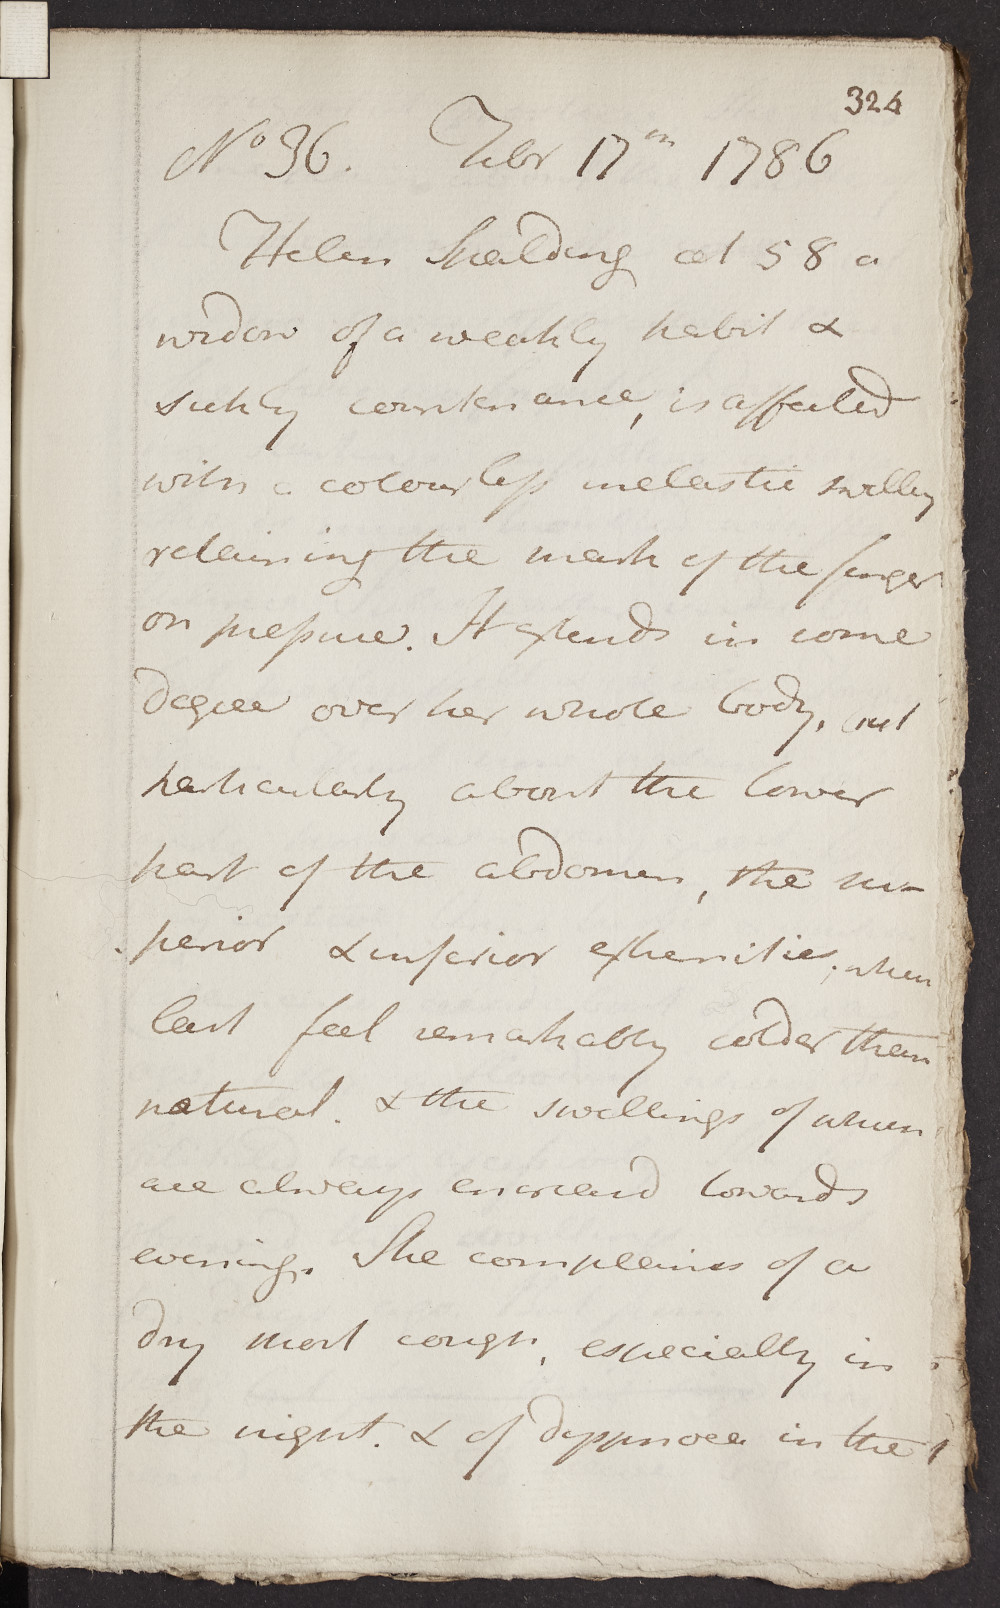 324
No 36. Febr 17th 1786
Helen Spalding aet 58 a
widow of a weakly habit &
sickly countenance, is affected
with a colourless inelastic swelling
retaining the mark of the finger
on pressure. It extends in some
degree over her whole body, but
particularly about the lower
part of the abdomen, the su-
perior & inferior extremities, which
last feel remarkably colder than
natural. & the swellings of which
are always encreased towards
evening. She complains of a
dry short cough, especially in
the night. & of dyspnoea in the